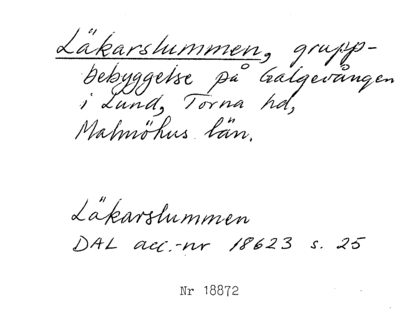 Läkarslummen, grupp-
bebyggelse på Galgevången
i Lund, Torna hd,
Malmöhus län.
Läkarslummen
DAL acc.-nr 18623 s. 25
Nr 18872